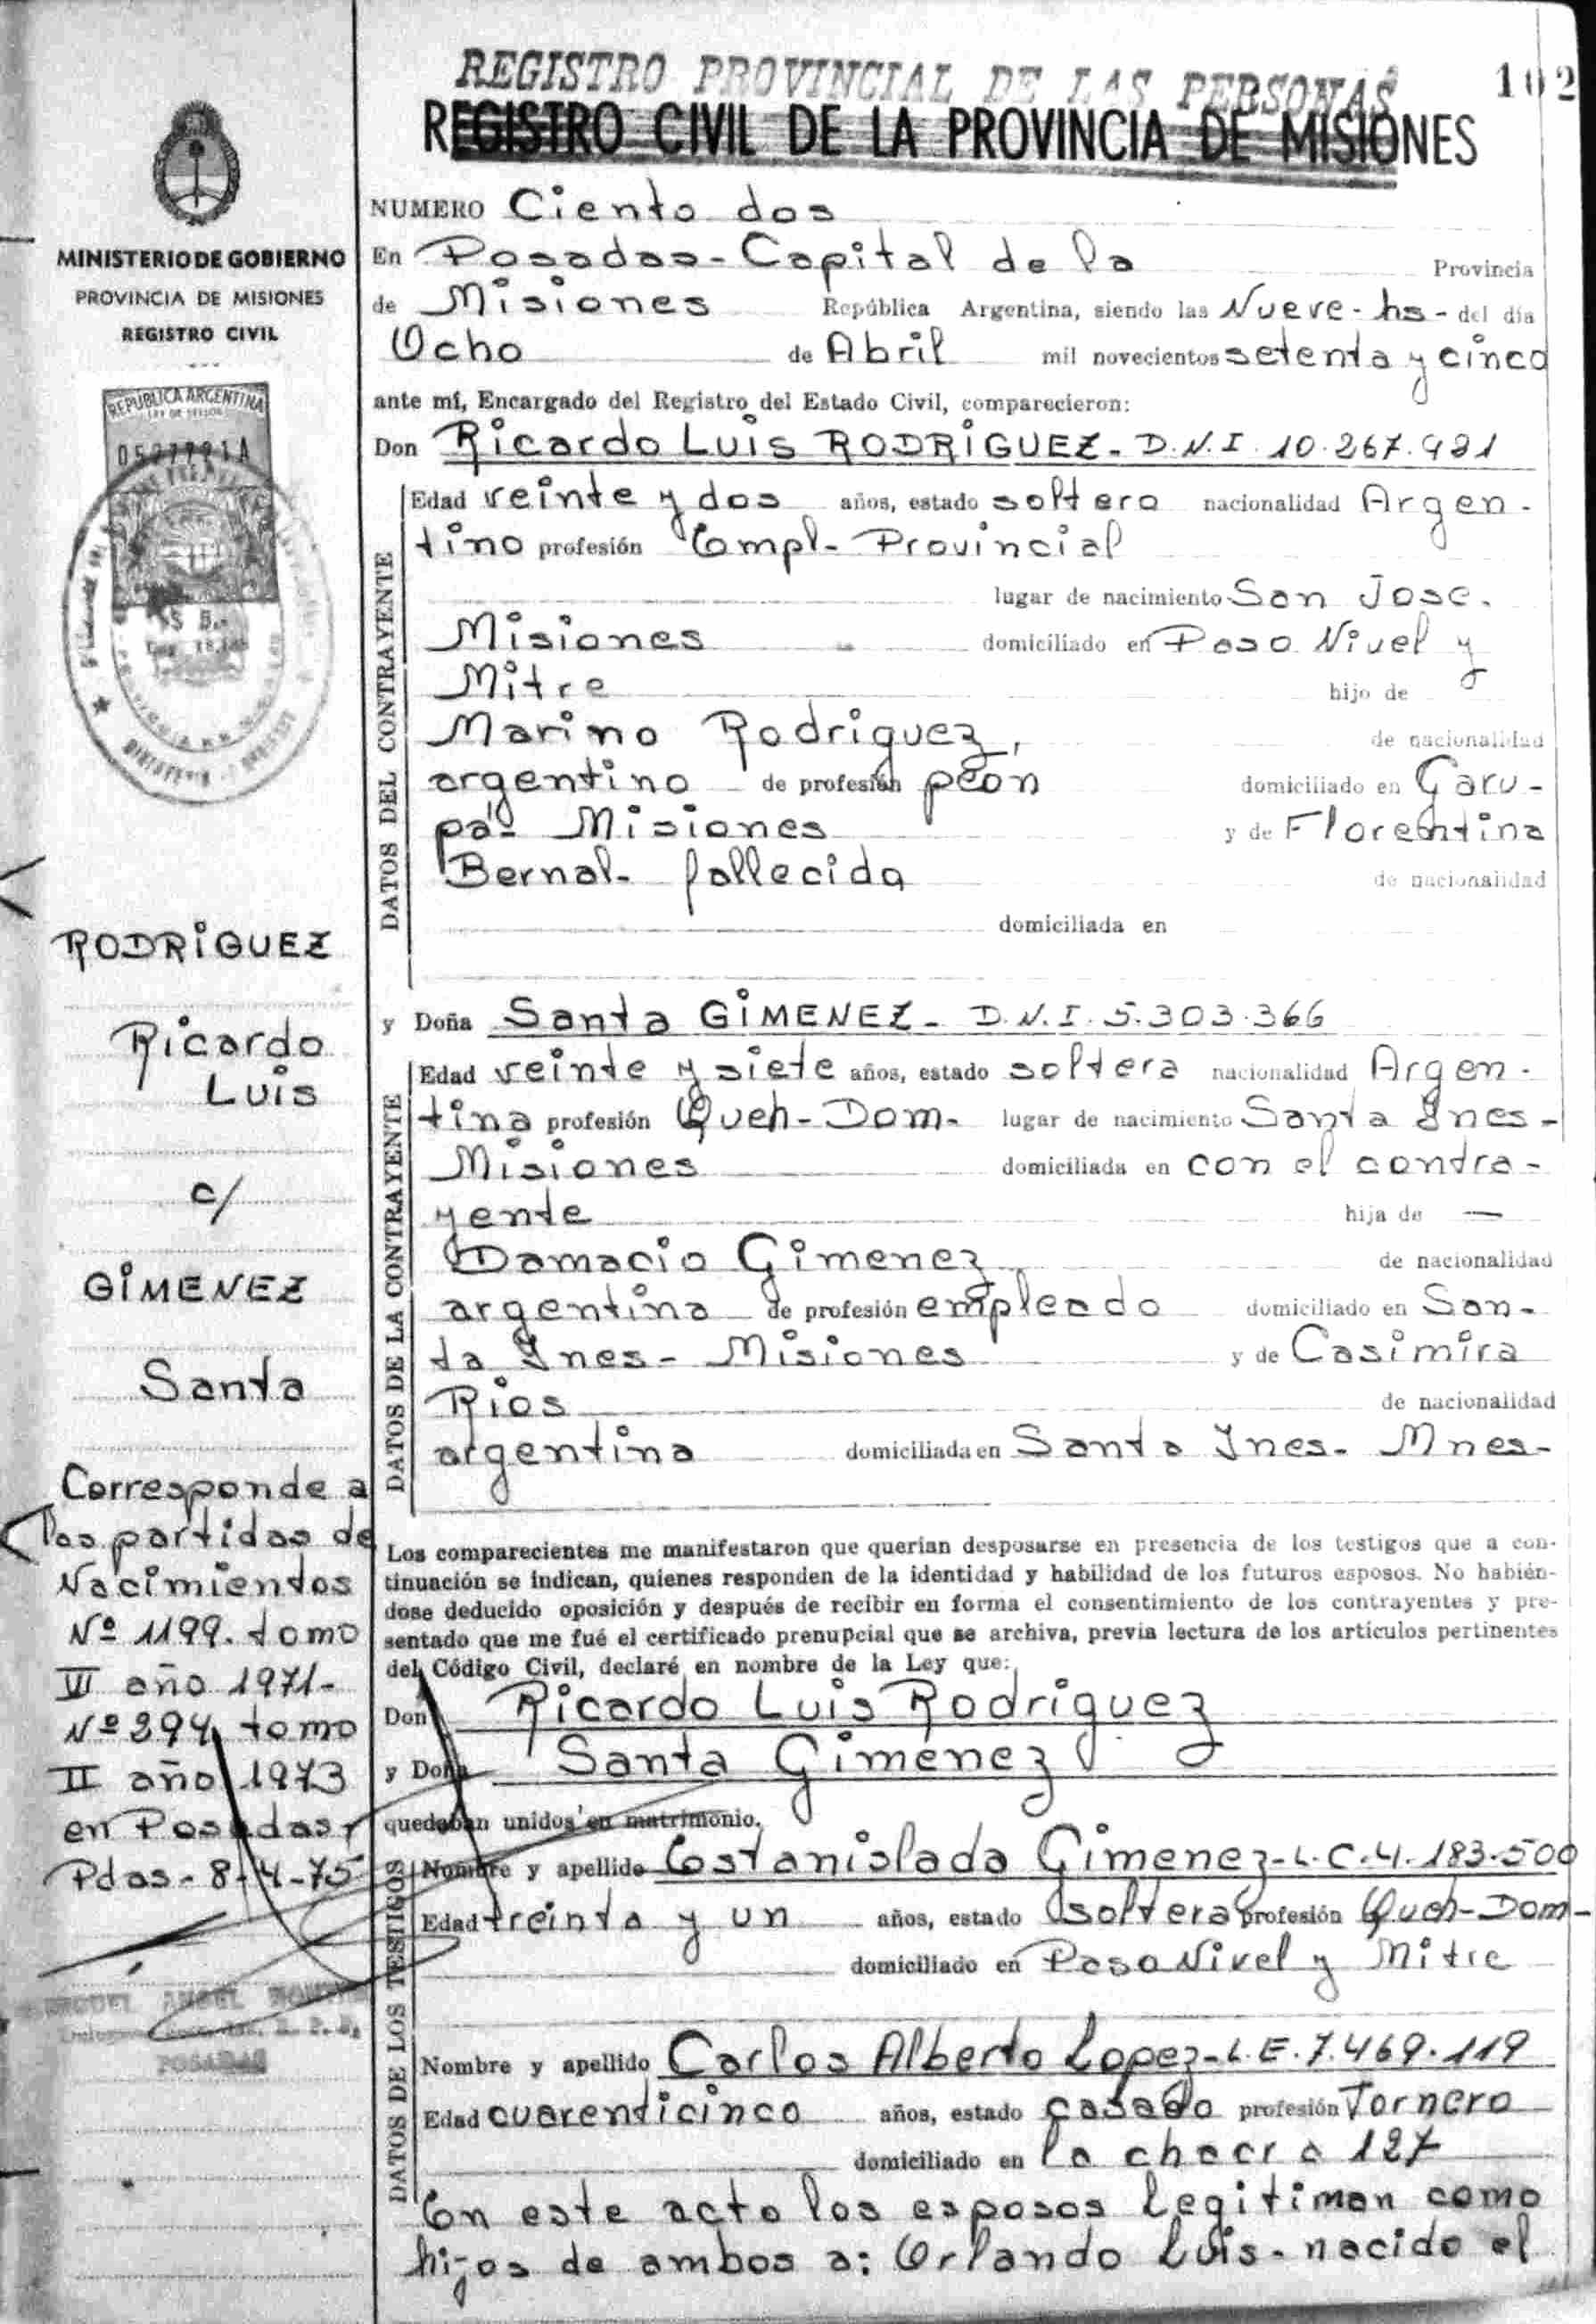 REGISTRO PROVINCIAL DE LAS PERSONAS
102
REGISTRO CIVIL DE LA PROVINCIA DE MISIONES
MINISTERIO DE GOBIERNO
PROVINCIA DE MISIONES
REGISTRO CIVIL
REPUBLICA ARGENTINA
NUMERO Ciento dos
En Posadas - Capital de la Provincia
de Misiones República Argentina, siendo las Nueve - hs - del día
Ocho de Abril mil novecientos setenta y cinco
ante mí, Encargado del Registro del Estado Civil, comparecieron:
Don Ricardo Luis RODRIGUEZ - D.N.I. 10.267.981
DATOS DEL CONTRAYENTE
Edad veinte y dos años, estado soltero nacionalidad Argen-
tino profesión Empl- Provincial
lugar de nacimiento San Jose.
Misiones domiciliado en Paso Nivel y
Mitre hijo de
Marino Rodriguez, de nacionalidad
argentino de profesión peon domiciliado en Garu-
pá- Misiones y de Florentina
Bernal- fallecida de nacionalidad
domiciliada en
y Doña Santa GIMENEZ - D.N.I. 5.303.366
DATOS DE LA CONTRAYENTE
Edad veinte y siete años, estado soltera nacionalidad Argen-
tina profesión Queh-Dom- lugar de nacimiento Santa Ines-
Misiones domiciliada en con el contra-
yente hija de —
Damacio Gimenez de nacionalidad
argentino de profesión empleado domiciliado en San-
ta Ines- Misiones y de Casimira
Rios de nacionalidad
argentina domiciliada en Santa Ines- Mnes-
Los comparecientes me manifestaron que querían desposarse en presencia de los testigos que a con-
tinuación se indican, quienes responden de la identidad y habilidad de los futuros esposos. No habién-
dose deducido oposición y después de recibir en forma el consentimiento de los contrayentes y pre-
sentado que me fué el certificado prenupcial que se archiva, previa lectura de los artículos pertinentes
del Código Civil, declaré en nombre de la Ley que:
Don Ricardo Luis Rodriguez
y Doña Santa Gimenez
quedaban unidos en matrimonio.
DATOS DE LOS TESTIGOS
Nombre y apellido Estanislada Gimenez-L.C.4.183.500
Edad treinta y un años, estado soltera profesión Queh-Dom-
domiciliado en Paso Nivel y Mitre
Nombre y apellido Carlos Alberto Lopez-L.E.7.469.119
Edad cuarenticinco años, estado casado profesión Tornero
domiciliado en la chacra 127
En este acto los esposos legitiman como
hijos de ambos a: Orlando Luis- nacido el
RODRIGUEZ
Ricardo
Luis
c/
GIMENEZ
Santa
Corresponde a
las partidas de
Nacimientos
Nº 1199. tomo
VI año 1971-
Nº 294, tomo
II año 1973
en Posadas
Pdas- 8-4-75
POSADAS